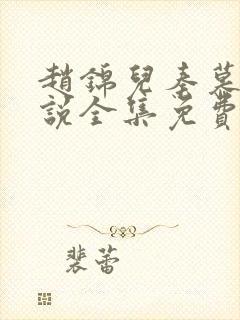 趙錦兒秦慕
說全集免費
裴蕾